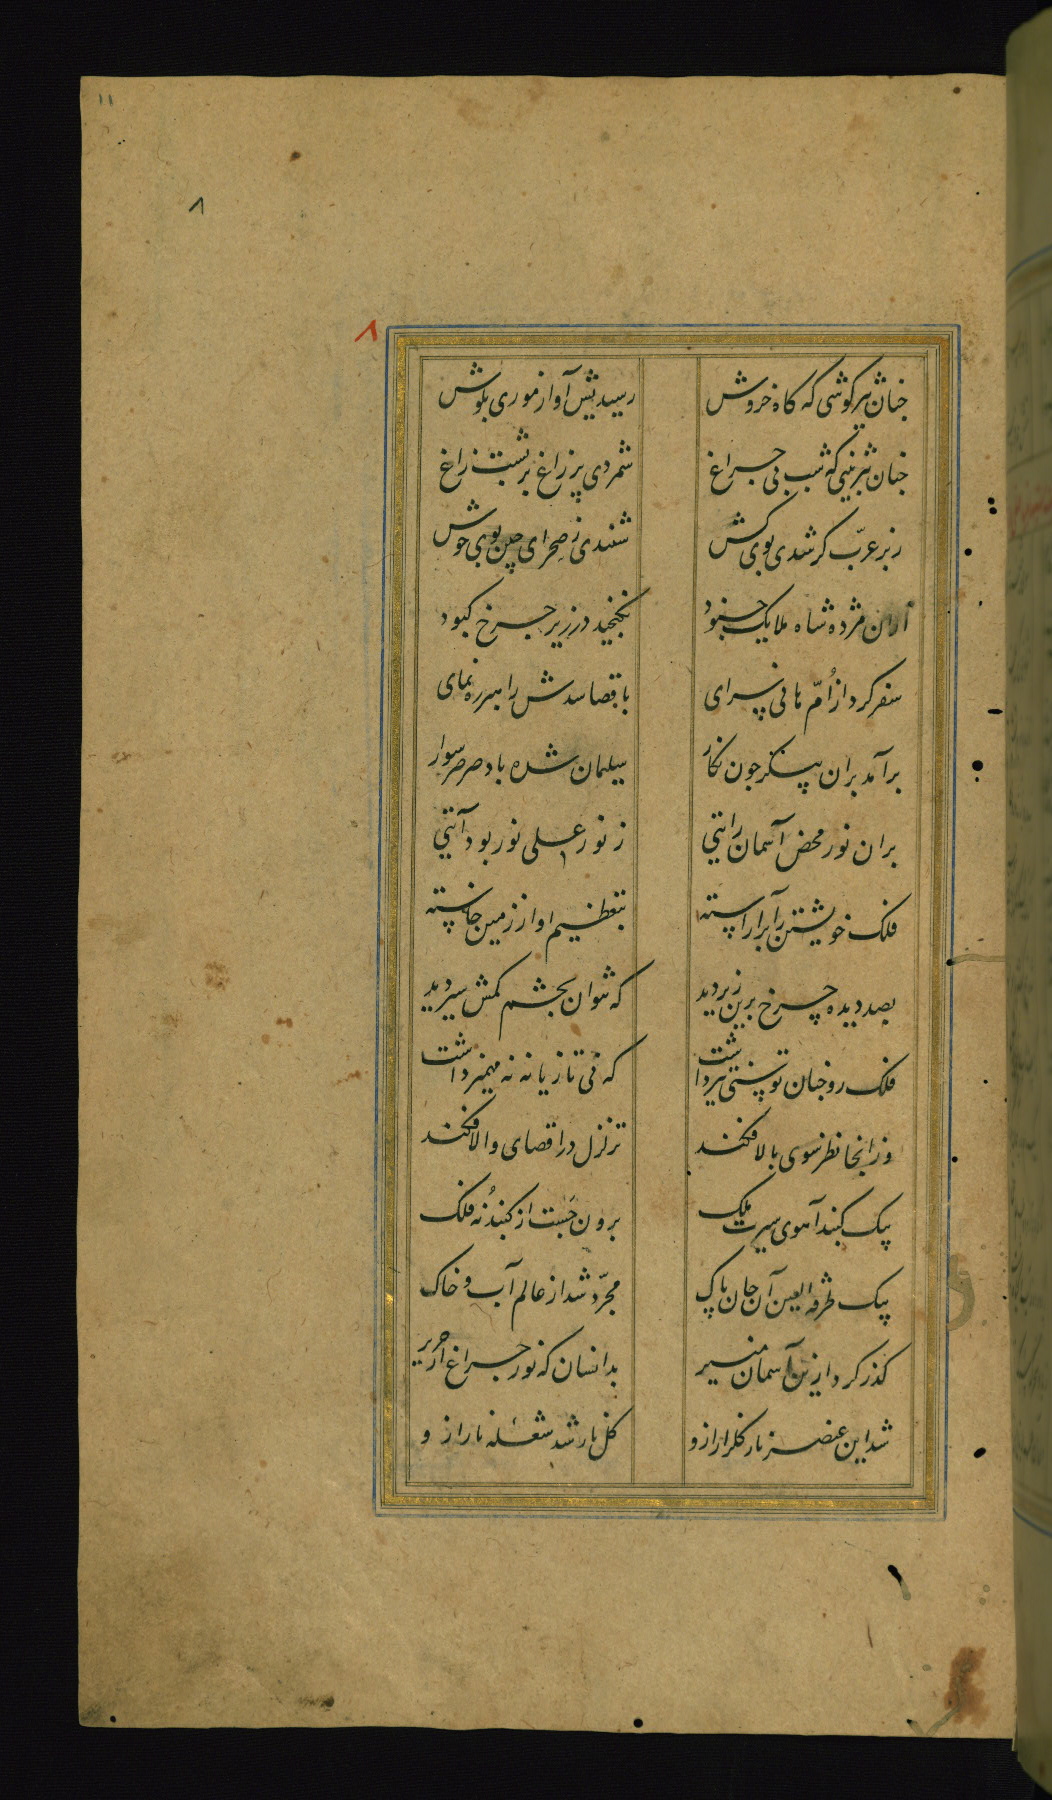 ۱۱
۸
۸
جنان تیز کوشی که کاه خروش
رسیدیش آواز موری بکوش
جنان تیزبینی که شب بی جراغ
شمردی پر زاغ بر پشت زاغ
زبر عرّب کر شدی بوی کش
شنیدی ز صحرای چین بوی خوش
ازان مژده شاه ملایک جنود
نکنجید در زیر جرخ کبود
سفر کرد از اُمّ هانی سرای
باقصا سدش راهبر ره نمای
برآمد بران پیکر جون نکار
سلیمان شده باد صرصر سوار
بران نور محض آسمان رایتی
ز نور علی نور بود آیتی
فلک خویشتن را برآراسته
بتعظیم او از زمین خاسته
بصد دیده چرخ برین زیر دید
که نتوان بچشم کمش سیر دید
فلک رو جنان توسنی تیز داشت
که نی تازیانه نه مهمیز داشت
وزانجا نظر سوی بالا فکند
تزلزل در اقصای والا فکند
بیک کنبد آهوی سیرت ملک
برون جَست از کنبد نُه فلک
بیک طرفه العین آن جان پاک
مجرّد شد از عالم آب و خاک
کذر کرد ازین آسمان منیر
بدانسان که نور جراغ از حریر
شد این عنصر نار کلزار ازو
کل نار شد شعله نار ازو